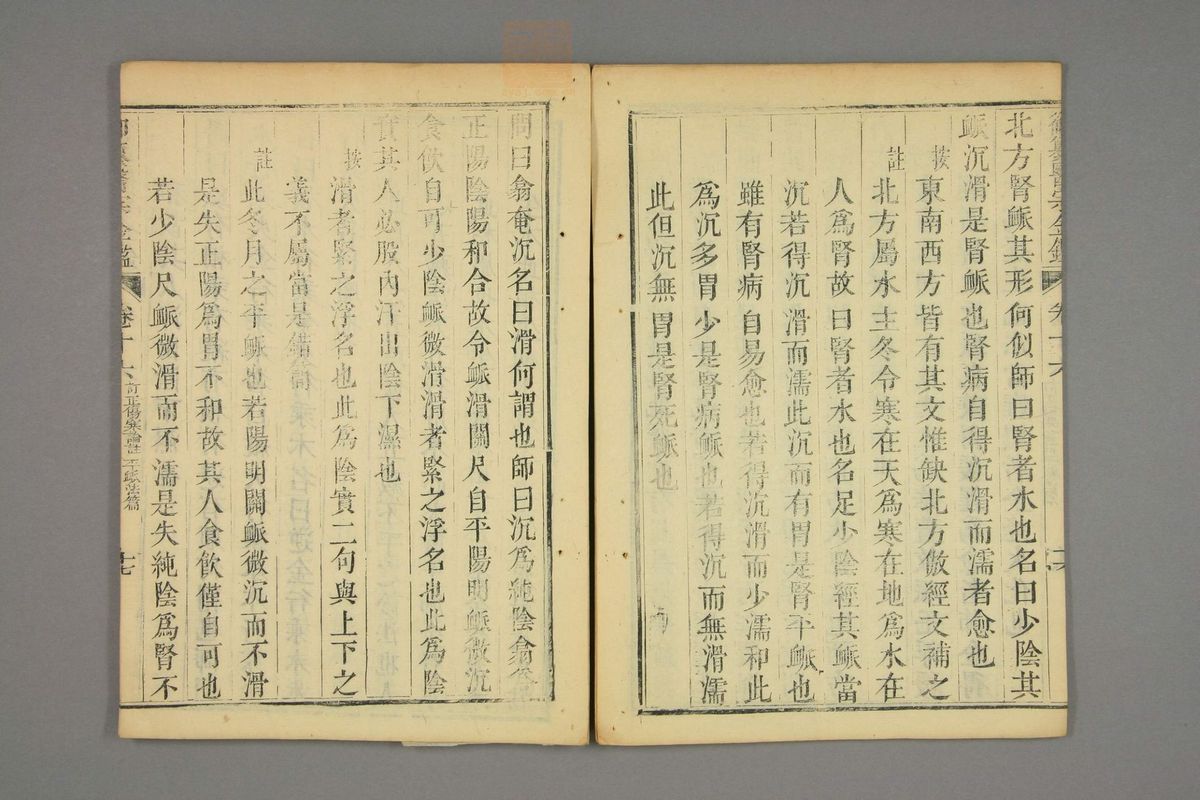 御纂醫宗金鑑 卷十六
北方腎脈其形何似師曰腎者水也名曰少陰其
脈沉滑是腎脈也腎病自得沉滑而濡者愈也
按東南西方皆有其文惟缺北方倣經文補之
註北方屬水主冬令寒在天爲寒在地爲水在
人爲腎故曰腎者水也名足少陰經其脈當
沉若得沉滑而濡此沉而有胃是腎平脈也
雖有腎病自易愈也若得沉滑而少濡和此
爲沉多胃少是腎病脈也若得沉而無滑濡
此但沉無胃是腎死脈也
問曰翕奄沉名曰滑何謂也師曰沉爲純陰翕爲
正陽陰陽和合故令脈滑關尺自平陽明脈微沉
食飲自可少陰脈微滑滑者緊之浮名也此爲陰
實其人必股內汗出陰下濕也
按滑者緊之浮名也此爲陰實二句與上下之
義不屬當是錯簡
註此冬月之平脈也若陽明關脈微沉而不滑
是失正陽爲胃不和故其人食飲僅自可也
若少陰尺脈微滑而不濡是失純陰爲腎不
御纂醫宗金鑑 卷十六 訂正傷寒論註 平脈法篇 十七